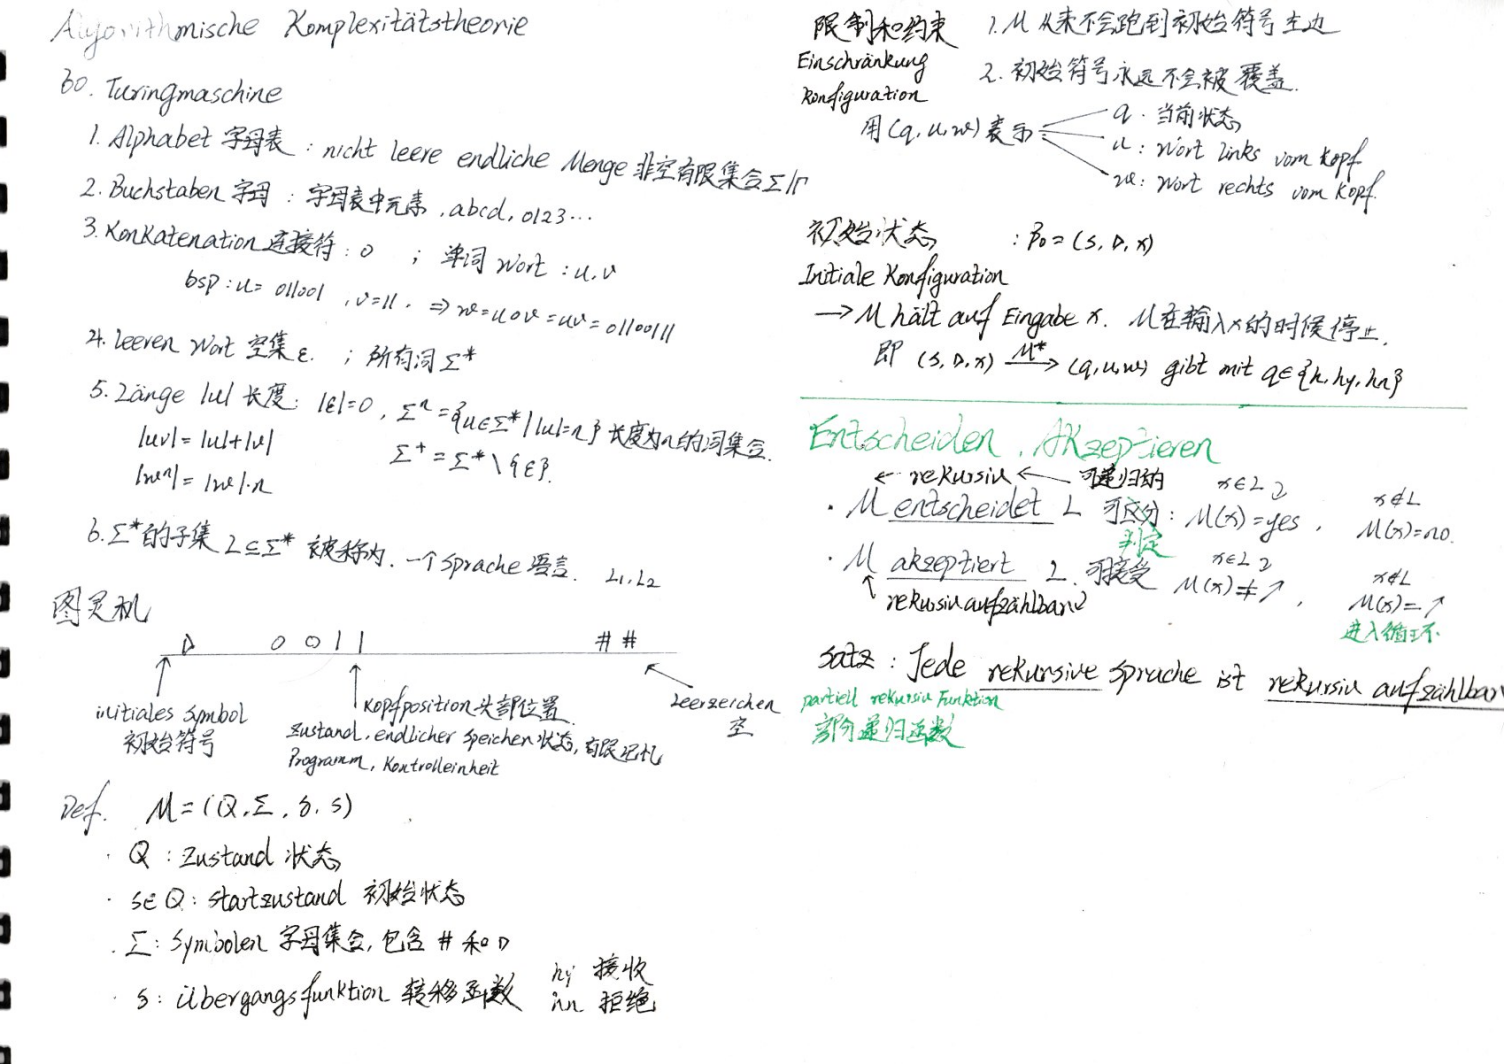 Algorithmische Komplexitätstheorie
60. Turingmaschine
1. Alphabet 字母表 : nicht leere endliche Menge 非空有限集合 Σ/Γ
2. Buchstaben 字母 : 字母表中元素, abcd, 0123...
3. Konkatenation 连接符 : o ; 单词 Wort : u, v
bsp : u = 011001 , v = 11. ⇒ w = u o v = uv = 01100111
4. leeren Wort 空集 ε. ; 所有词 Σ*
5. Länge |u| 长度: |ε|=0, Σⁿ = {u∈Σ* | |u|=n} 长度为n的词集合.
|uv| = |u|+|v|
Σ⁺ = Σ* \ {ε}.
|wⁿ| = |w|·n
6. Σ*的子集 L⊆Σ* 被称为. 一个 Sprache 语言. L₁, L₂
图灵机
▷ 0 0 1 1 # #
initiales Symbol
初始符号
Kopfposition 头部位置
Zustand, endlicher Speichen 状态, 有限记忆
Programm, Kontrolleinheit
Leerzeichen
空
Def. M = (Q, Σ, δ, s)
· Q : Zustand 状态
· s∈Q : startzustand 初始状态
· Σ : Symbolen 字母集合, 包含 # 和 ▷
· δ : übergangsfunktion 转移函数
hy 接收
hn 拒绝
限制和约束
Einschränkung
1. M 从来不会跑到初始符号左边
2. 初始符号永远不会被覆盖.
Konfiguration
用 (q, u, w) 表示
q : 当前状态
u : Wort links vom Kopf
w : Wort rechts vom Kopf.
初始状态 : β₀ = (s, ▷, x)
Initiale Konfiguration
→ M hält auf Eingabe x. M在输入x的时候停止.
即 (s, ▷, x) M*→ (q, u, w) gibt mit q∈{h, hy, hn}
Entscheiden, Akzeptieren
← rekursiv ← 可递归的
· M entscheidet L 可区分 : x∈L M(x) = yes, x∉L M(x) = no.
判定
· M akzeptiert L 可接受 x∈L M(x) ≠ ↗, x∉L M(x) = ↗
↑ rekursiv aufzählbar
进入循环
Satz : Jede rekursive Sprache ist rekursiv aufzählbar
partiell rekursiv Funktion
部分递归函数